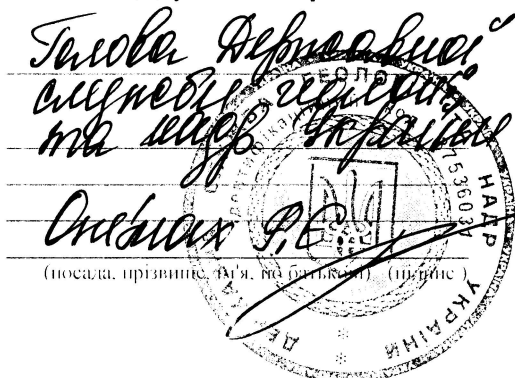 Голова Державної
служби геології
та надр України
Опімах Р.Є.
(посада, прізвище, ім'я, по батькові) (підпис)
ГЕОЛО
НАДР УКРАЇНИ